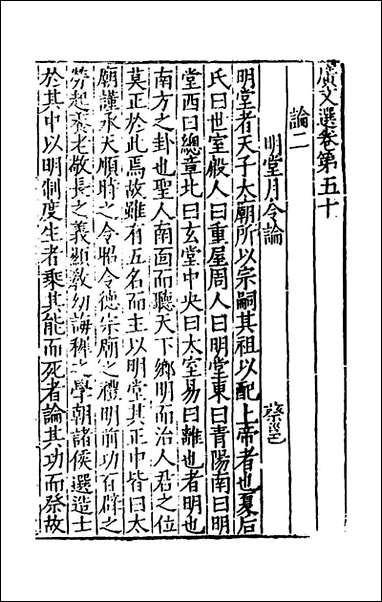 廣文選卷第五十
論二
明堂月令論 蔡邕
明堂者天子大廟所以宗嗣其祖以配上帝者也夏后
氏曰世室殷人曰重屋周人曰明堂東曰青陽南曰明
堂西曰總章北曰玄堂中央曰大室易曰離也者明也
南方之卦也聖人南面而聽天下鄉明而治人君之位
莫正於此焉故雖有五名而主以明堂其正中皆曰太
廟謹承天順時之令昭令德宗廟之禮明前功百辟之
勞起養老敬長之義顯教幼誨稺之學朝諸侯選造士
於其中以明制度生者乘其能而死者論其功而祭故